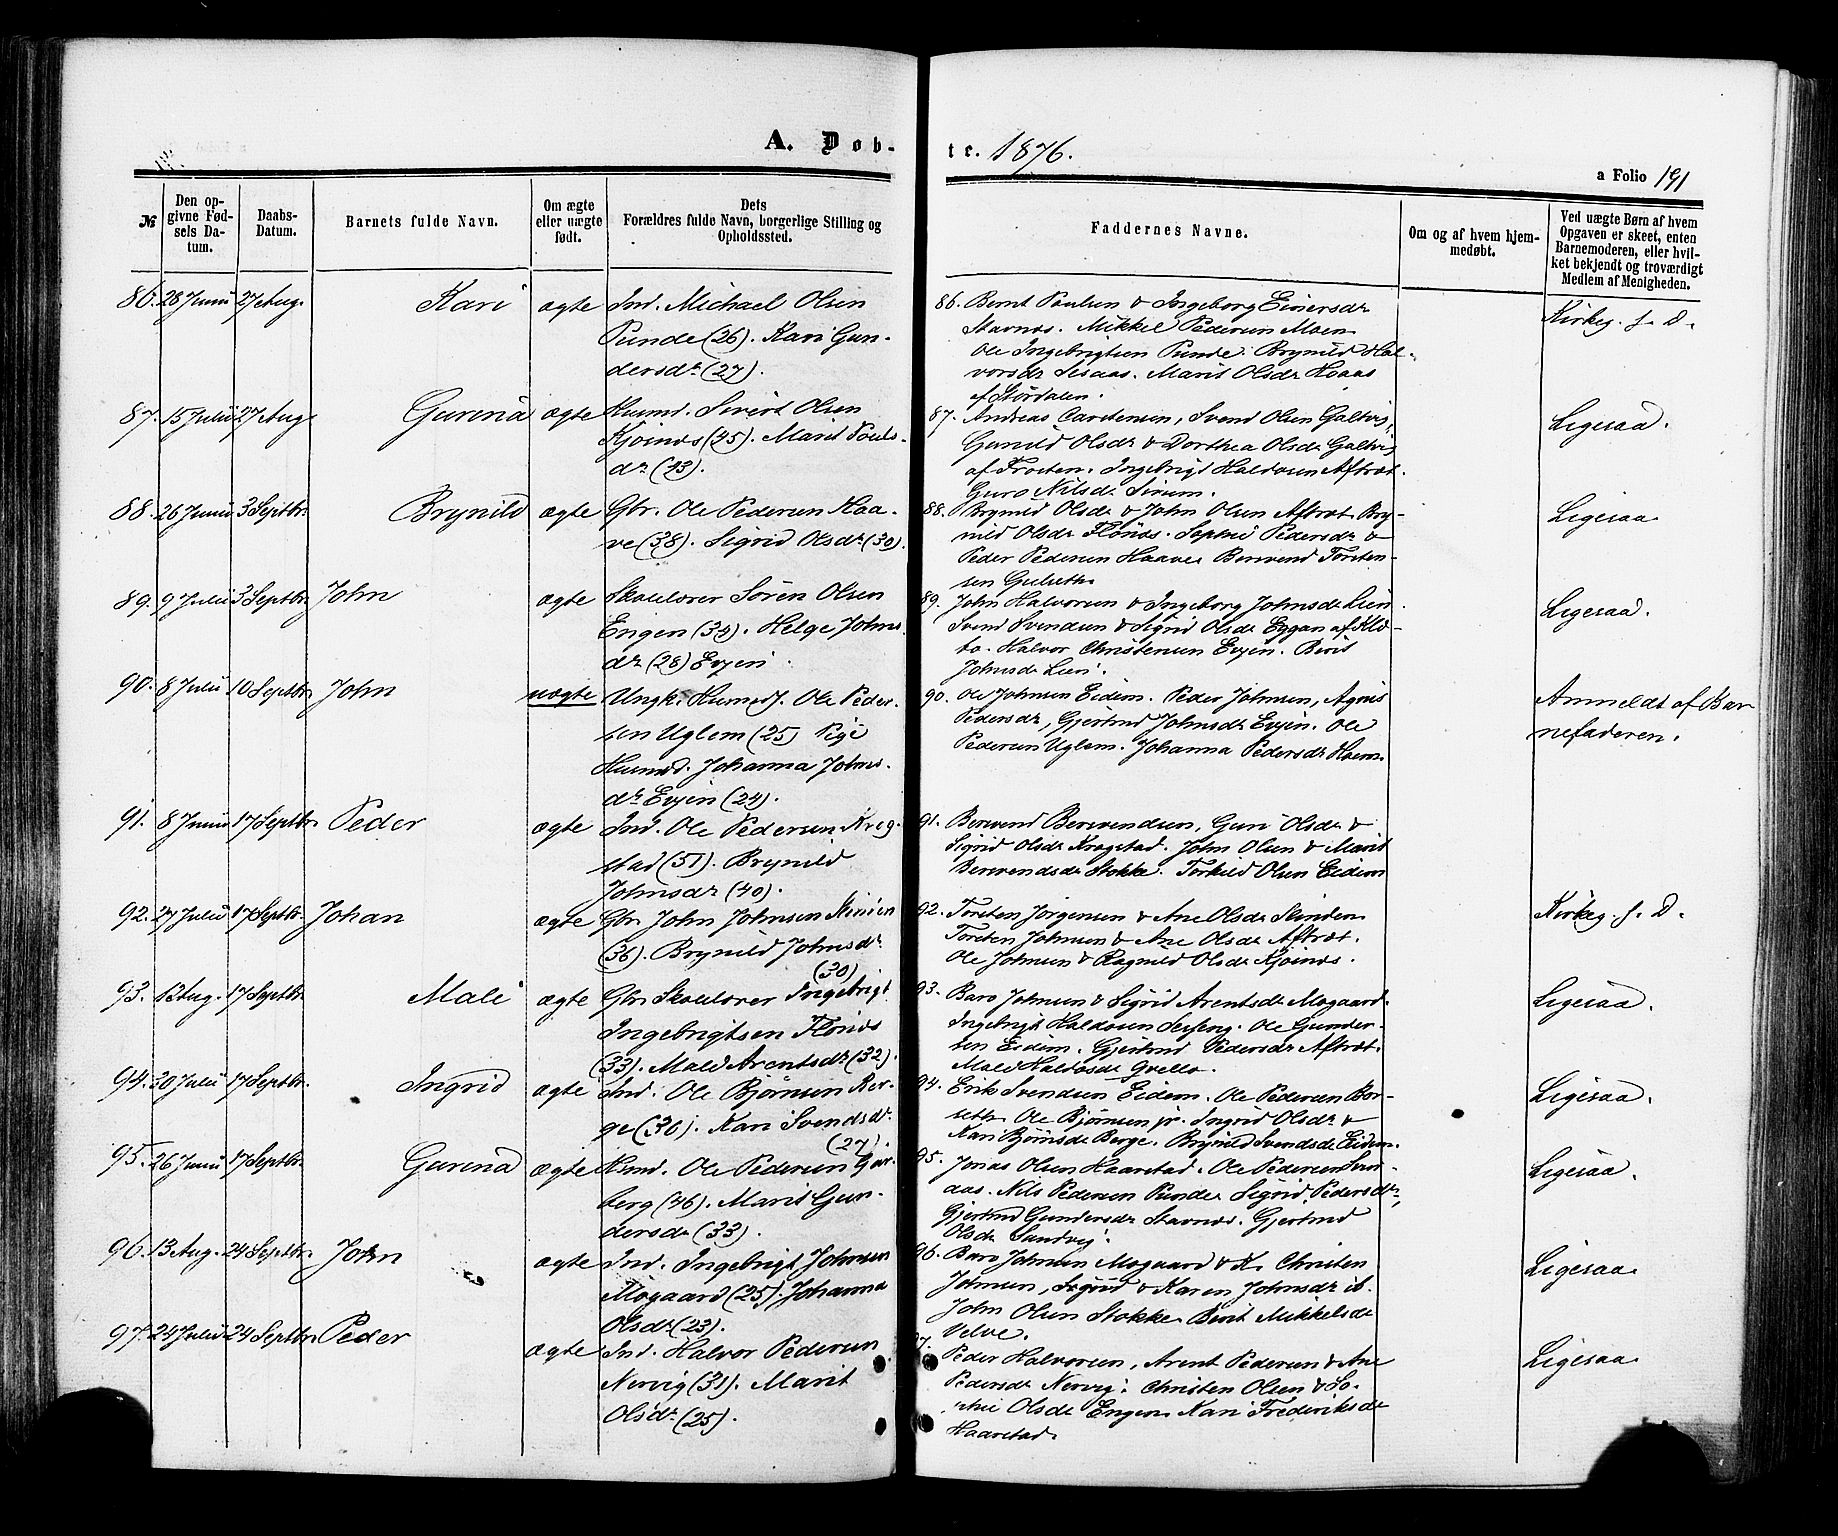 A. Døb-
te. 1876.
a Folio 191
№
Den op-
givne Fød-
sels Da-
tum.
Daabs-
Datum.
Barnets fulde Navn.
Om ægte
eller uægte
født.
Dets
Forældres fulde Navn, borgerlige Stilling og
Opholdssted.
Faddernes Navne.
Om og af hvem hjem-
medøbt.
Ved uægte Børn af hvem
Opgaven er skeet, enten
Barnemoderen, eller hvil-
ket bekjendt og troværdigt
Medlem af Menigheden.
86. 28 Juni 27 Aug. Kari ægte Ind. Michael Olsen
Punde (26). Kari Gun-
dersdr. (27).
86. Bernt Paulsen & Ingeborg Einersdr
Stavnes. Mikkel Pedersen Moen
Ole Ingebrigtsen Punde. Brynild Hal-
vorsdr Sesaas. Marit Olsdr Hoaas
af Størdalen.
Kirkeg. s. D.
87. 15 Juli 27 Aug Gurena ægte Huusmd. Sivert Olsen
Kjøsnes (45). Marit Pauls-
dr (43).
87. Andreas Carstensen, Svend Olsen Galtvig,
Gunild Olsdr & Dorthea Olsdr Galtvig
af Frosten. Ingebrigt Haldosen Aftret.
Guro Nilsdr Sirum.
Ligesaa.
88. 26 Juni 3 Septbr. Brynild ægte Gbr. Ole Pedersen Haa-
ve (38). Sigrid Olsdr (30).
88. Brynild Olsdr & John Olsen Aftret. Bry-
nild Olsdr Flønes. Sophie Pedersdr &
Peder Pedersen Haave. Berevend Torsten-
sen Gulseth.
Ligesaa
89. 9 Juli 3 Septbr. John ægte Skolelærer Søren Olsen
Engen (34). Helge Johns-
dr (28) Evjen.
89. John Halvorsen & Ingeborg Johnsdr Lien.
Svend Svendsen & Sigrid Olsdr Eggan af Klæ-
bo. Halvor Christensen Evjen. Berit
Johnsdr Lien.
Ligesaa.
90. 8 Juli 10 Septbr. John uægte Ungk. Huusmd. Ole Peder-
sen Uglem (25) Pige
Huusmd. Johanna Johns-
dr. Evjen (24).
90. Ole Johnsen Eidem. Peder Johnsen, Agnis
Pedersdr, Gjertrud Johnsdr Evjen. Ole
Pedersen Uglem. Johanna Pedersdr Hoem.
Anmeldt af Bar-
nefaderen.
91. 8 Juni 17 Septbr. Peder ægte Ind. Ole Pedersen Krog-
stad (51). Brynild
Johnsdr (40).
91. Berevend Berevendsen, Guri Olsdr &
Sigrid Olsdr Krogstad. John Olsen & Marit
Berevendsdr Stokke. Torkild Olsen Eidem
92. 27 Juli 17 Septbr. Johan ægte Gbr. John Johnsen Slinden
(36). Brynild Johnsdr.
(30)
92. Torsten Jørgensen & Ane Olsdr Slinden
Torsten Johnsen & Ane Olsdr Aftret.
Ole Johnsen & Ragnild Olsdr Kjøsnes.
Kirkeg. s. D.
93. 13 Aug. 17 Septbr. Mali ægte Gbr. Skolelærer Ingebrigt
Ingebrigtsen Flønes
(33). Mali Arentsdr (32).
93. Baro Johnsen & Sigrid Arentsdr Mogaard.
Ingebrigt Haldosen Ses­seng. Ole Gunder-
sen Eidem. Gjertrud Pedersdr Aftret.
Mali Haldosdr Grelle.
Ligesaa.
94. 30 Juli 17 Septbr. Ingrid ægte Ind. Ole Bjørnsen Ber-
ge (30). Kari Svendsdr.
(27).
94. Erik Svendsen Eidem. Ole Pedersen Bor-
seth. Ole Bjørnsen jr. Ingrid Olsdr &
Kari Bjørnsdr Berge. Brynild Svendsdr Eidem.
Ligesaa.
95. 26 Juni 17 Septbr. Gurena ægte Husmd. Ole Pedersen Gar-
berg (46). Marit Gun-
dersdr (33).
95. Jonas Olsen Haarstad. Ole Pedersen
aas. Nils Pedersen Punde. Sigrid Pedersdr,
Gjertrud Gundersdr Stavnes. Gjertrud
Olsdr Sandvig.
Ligesaa.
96. 13 Aug. 24 Septbr. John ægte Ind. Ingebrigt Johnsen
Mogaard (25). Johanna
Olsdr. (23).
96. Baro Johnsen Mogaard & K. Christen
Johnsen, Sigrid & Karen Johnsdr ib.
John Olsen Stokke. Berit Mikkelsdr
Velve.
Ligesaa
97. 24 Juli 24 Septbr. Peder ægte Ind. Halvor Pedersen
Nervig (31). Marit
Olsdr. (25).
97. Peder Halvorsen, Arent Pedersen & Ane
Pedersdr Nervig. Christen Olsen & So-
phie Olsdr Engen. Kari Frederiksdr
Haarstad.
Ligesaa